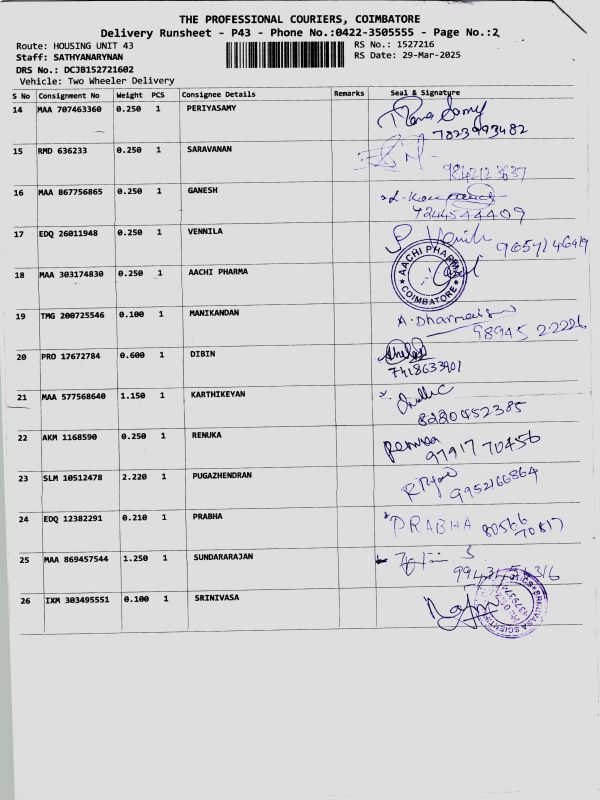 THE PROFESSIONAL COURIERS, COIMBATORE
Delivery Runsheet - P43 - Phone No.:0422-3505555 - Page No.:2
Route: HOUSING UNIT 43
RS No.: 1527216
Staff: SATHYANARYNAN
RS Date: 29-Mar-2025
DRS No.: DCJB152721602
Vehicle: Two Wheeler Delivery
S No Consignment No Weight PCS Consignee Details Remarks Seal & Signature
14 MAA 707463360 0.250 1 PERIYASAMY
7023993482
15 RMD 636233 0.250 1 SARAVANAN
16 MAA 867756865 0.250 1 GANESH
7244544409
17 EDQ 26011948 0.250 1 VENNILA
18 MAA 303174830 0.250 1 AACHI PHARMA AACHI PHARMA COIMBATORE
19 TMG 200725546 0.100 1 MANIKANDAN A. Dharmaraj
98945 22226
20 PRO 17672784 0.600 1 DIBIN
7418633901
21 MAA 577568640 1.150 1 KARTHIKEYAN
8280452385
22 AKM 1168590 0.250 1 RENUKA Renuka
97917 70456
23 SLM 10512478 2.220 1 PUGAZHENDRAN
9952166864
24 EDQ 12382291 0.210 1 PRABHA PRABHA 80566
70817
25 MAA 869457544 1.250 1 SUNDARARAJAN
26 IXM 303495551 0.100 1 SRINIVASA